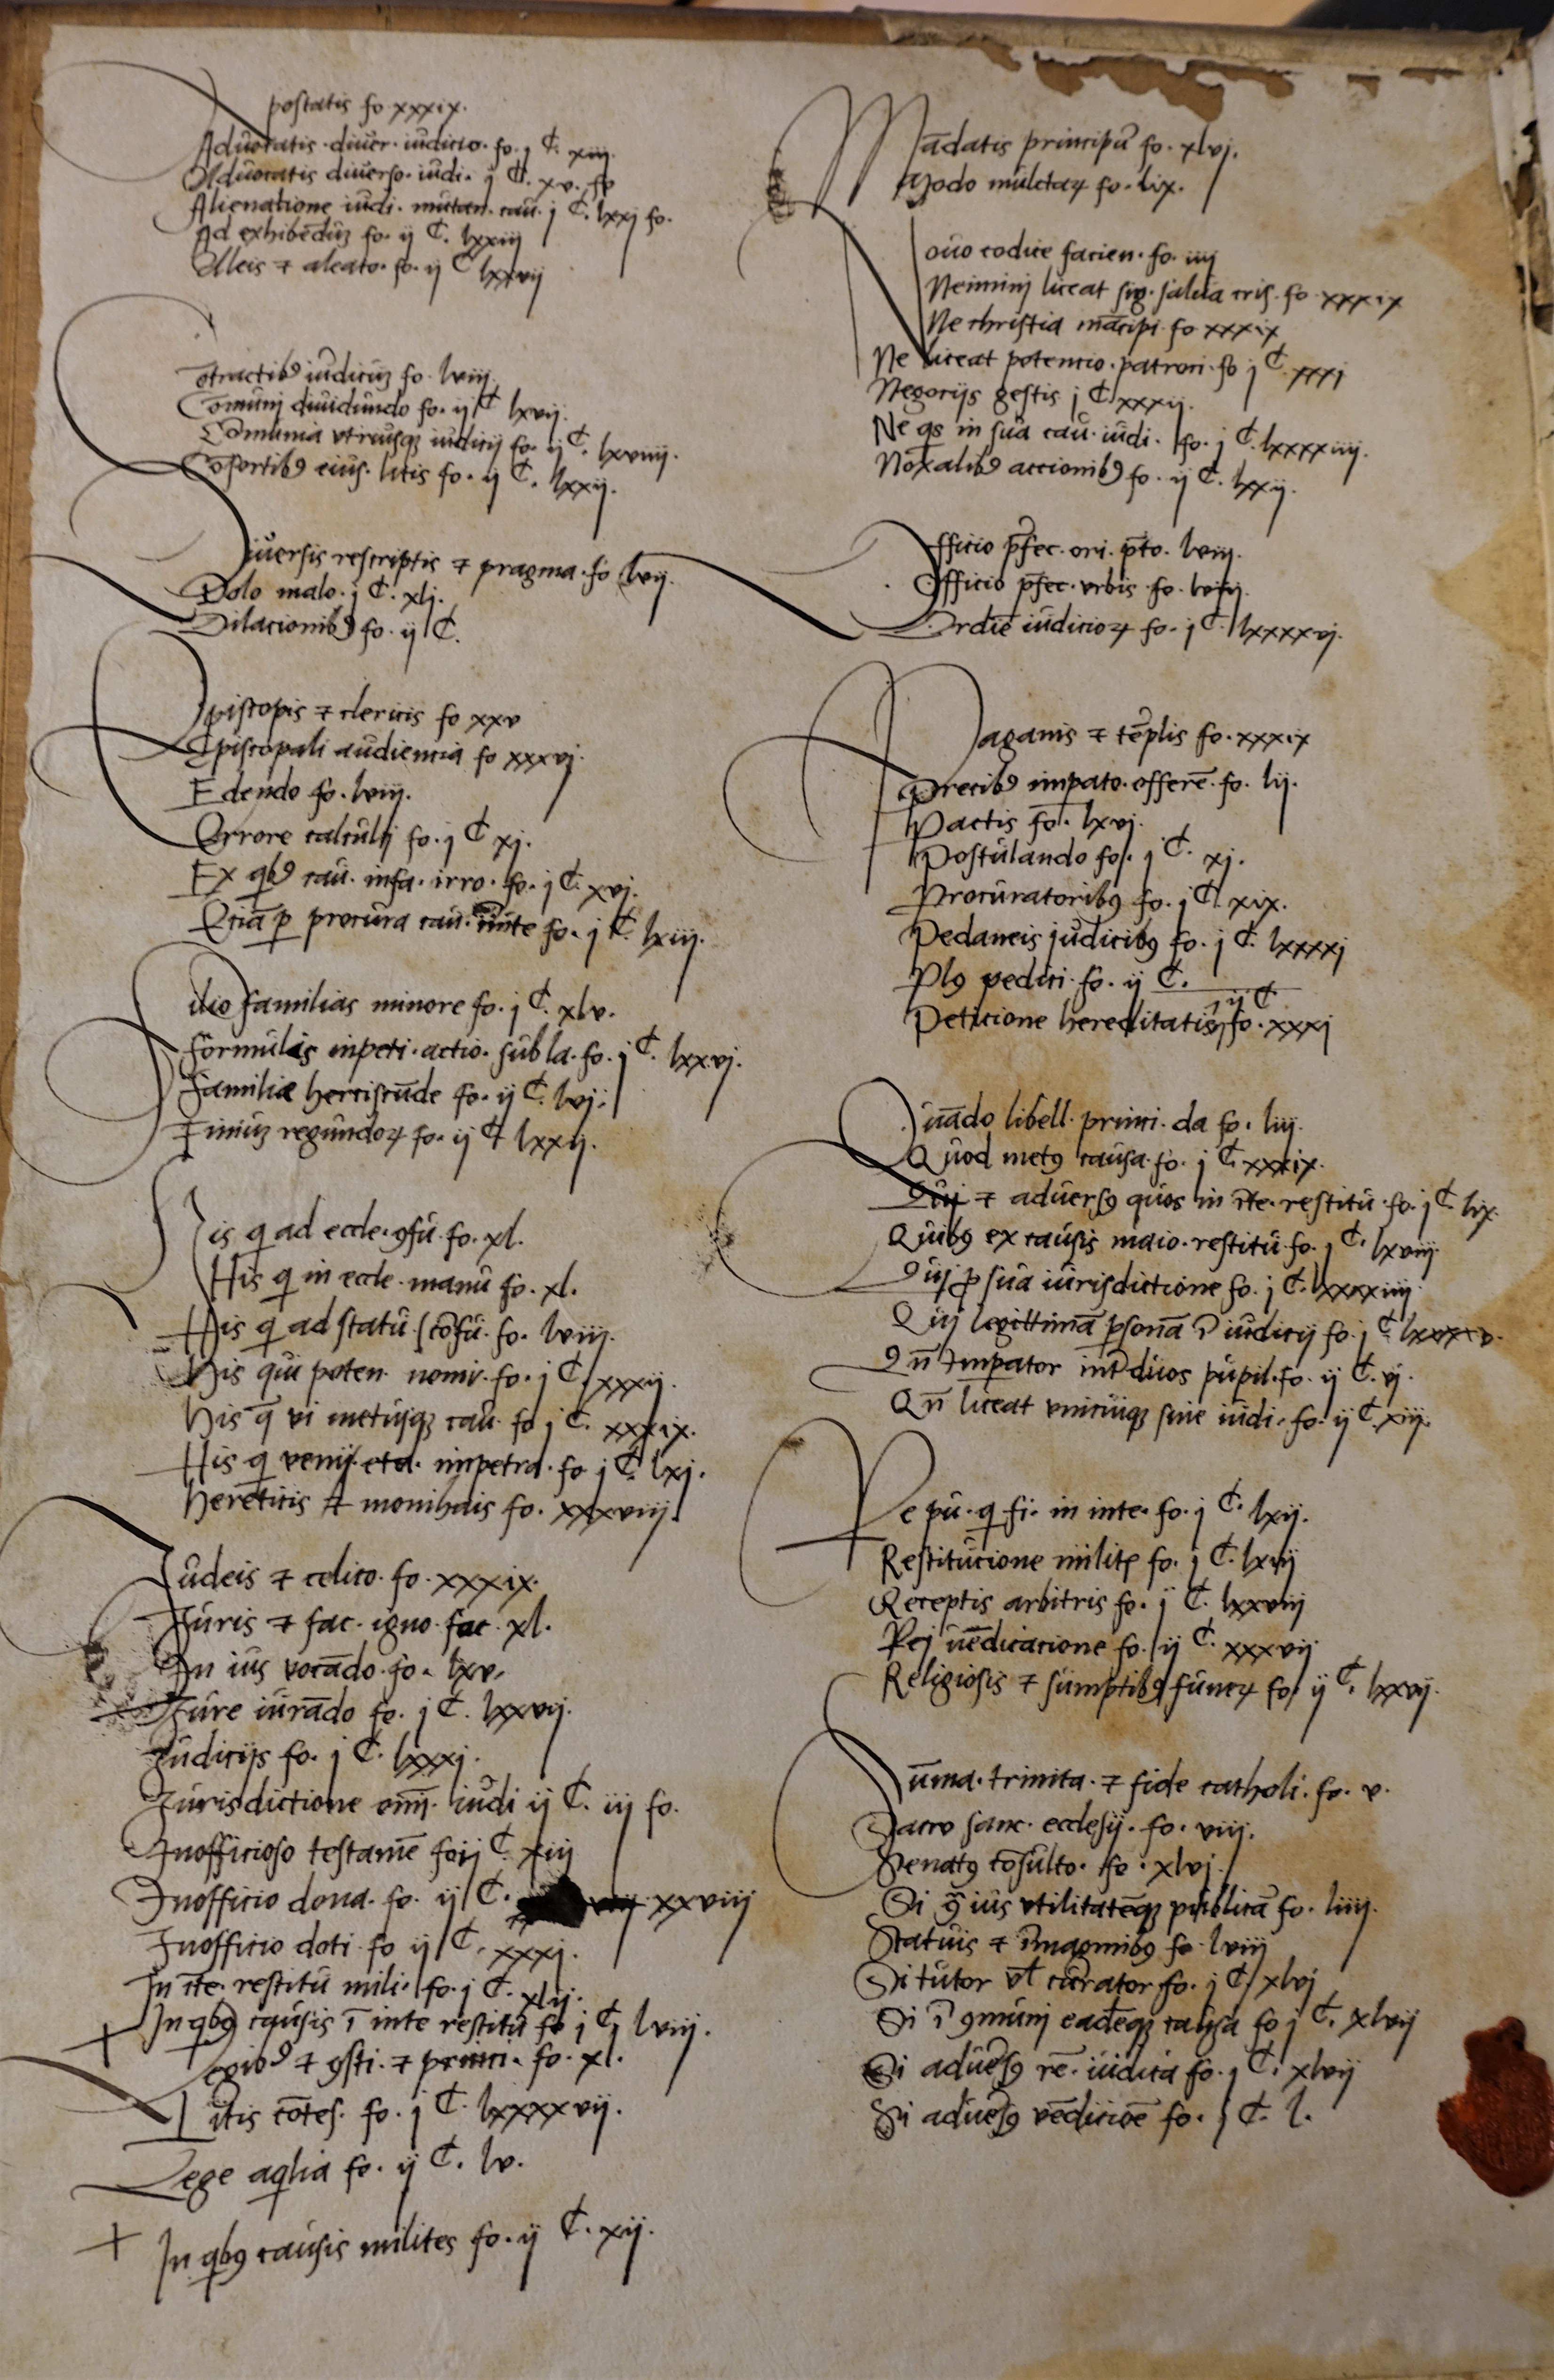 Apostatis fo xxxix.
Aduocatis · diuer · iudicio · fo. j C. xiij.
Aduocatis diuerso · iudi. j C. xv. fo
Alienatione iudi. mutan. cau. j C. lxxj fo.
Ad exhibēdūz fo. ij C. lxxiij
Aleis ⁊ aleato. fo. ij C lxxvij
Cōtractibꝰ iudicuz fo. lviij.
Cōmuni diuidundo fo. ij C lxvij.
Cōmunia vtriusqꝫ iudicij fo. ij C. lxviiij.
Cōsortibꝰ eius. litis fo. ij C. lxxij.
Diuersis rescriptis ⁊ pragma. fo lvij.
Dolo malo. j C. xlj.
Dilacionibꝰ fo. ij C.
Episcopis ⁊ clericis fo xxv
Episcopali audiencia fo xxxvj.
Edendo fo. lviij.
Errore calculi fo. j C xj.
Ex qbꝰ cau. infa. irro. fo. j C. xvj.
Eciā ꝑ procura cau. fo. j C. lxiij.
filio familias minore fo. j C. xlv.
formulis inpeti. actio. subla. fo. j C. lxxvj.
Familiæ herciscūde fo. ij C. lvj.
Finiūz regundoꝝ fo. ij C lxxij.
His q ad eccle. ꝯfu. fo. xl.
His q in eccle. manu fo. xl.
His q ad statu. cōfu. fo. lviij.
His qui poten. nomi. fo. j C. xxxij.
His q̄ vi metusqꝫ cau. fo j C. xxxix.
His q venij eta. impetra. fo j C. lxj.
Hereticis ⁊ monihais fo. xxxviij.
Iudeis ⁊ celico. fo. xxxix.
Iuris ⁊ fac. igno. fac. xl.
In ius vocādo. fo. lxv.
Iure iurādo fo. j C. lxxvij.
Iudicijs fo. j C. lxxxj.
Iurisdictione omī. iudi ij C. iij fo.
Inofficioso testamē fo ij C. xiij
Inofficio dona. fo. ij C. xxviij
Inofficio doti. fo ij C. xxxj.
In īte. restitu mili. fo. j C. xlij.
+ In qbꝰ causis ī inte restitu fo j C lviij.
Legibꝰ ⁊ ꝯsti. ⁊ princi. fo. xl.
Litis cōtes. fo. j C. lxxxxvij.
Lege aqlia fo. ij C. lv.
+ In qbꝰ causis milites fo. ij C. xij.
Mādatis principū fo. xlvj.
Modo multaꝝ fo. lix.
Nouo codice facien. fo. iiij
Neimini liceat sig. salua cris. fo xxxix
Ne christia mācipi. fo xxxix
Ne liceat potencio. patroci. fo j C. xxxj
Negocijs gestis j C xxxij.
Ne qs in sua cau. iudi. fo. j C. lxxxxiiij.
Noxalibꝰ accionibꝰ fo. ij C. lxxij.
Officio p̄fec. ori. p̄to. lviij.
Officio p̄fec. vrbis fo. lviij.
Ordīe iudicioꝝ fo. j C. lxxxxvj.
Paganis ⁊ tēplis fo. xxxix
Precibꝰ impato. offerē. fo. lij.
Pactis fo. lxvj.
Postulando fo. j C. xj.
Procuratoribꝰ fo. j C. xix.
Pedaneis judicibꝰ fo. j C. lxxxxj
Plꝰ pedici. fo. ij C.
Peticione hereditatis fo. ij C xxxj
Quādo libell. princi. da fo. liij.
Quod metꝰ causa. fo. j C. xxxix.
Qui ⁊ aduersꝰ quos in īte. restitu. fo. j C. lix.
Quibꝰ ex causis maio. restitu. fo. j C. lxviij.
Qui ꝓ sua iurisdictione fo. j C. lxxxxiiij
Qui legittimā ꝑsonā ī iudicij fo. j C. lxxxxv.
Qn̄ Imꝑator inter duos pupil. fo. ij C. vj.
Qn̄ liceat vnicuiqꝫ sine iudi. fo. ij C. xiij.
Re pu. q fi. in inte. fo. j C. lxij.
Restitucione milit fo. j C. lxvij
Receptis arbitris fo. ij C. lxxviij
Rej uēdicacione fo. ij C. xxxvij
Religiosis ⁊ sumptibꝰ funeꝝ fo. ij C. lxxvij.
Sūma. trinita. ⁊ fide catholi. fo. v.
Sacro sanc. ecclesij. fo. viij.
Senatꝰ cōsulto. fo. xlvj.
Si ꝯ ius vtilitatēqꝫ publicā fo. liiij.
Statuis ⁊ īmaginibꝰ fo. lviij
Si tutor vl curator fo. j C xlvj
Si ī ꝯmuni eadēqꝫ causa fo j C. xlvij
Si aduersꝰ rē. iudica fo. j C. xlvij
Si aduersꝰ vēdicioē fo. j C. l.